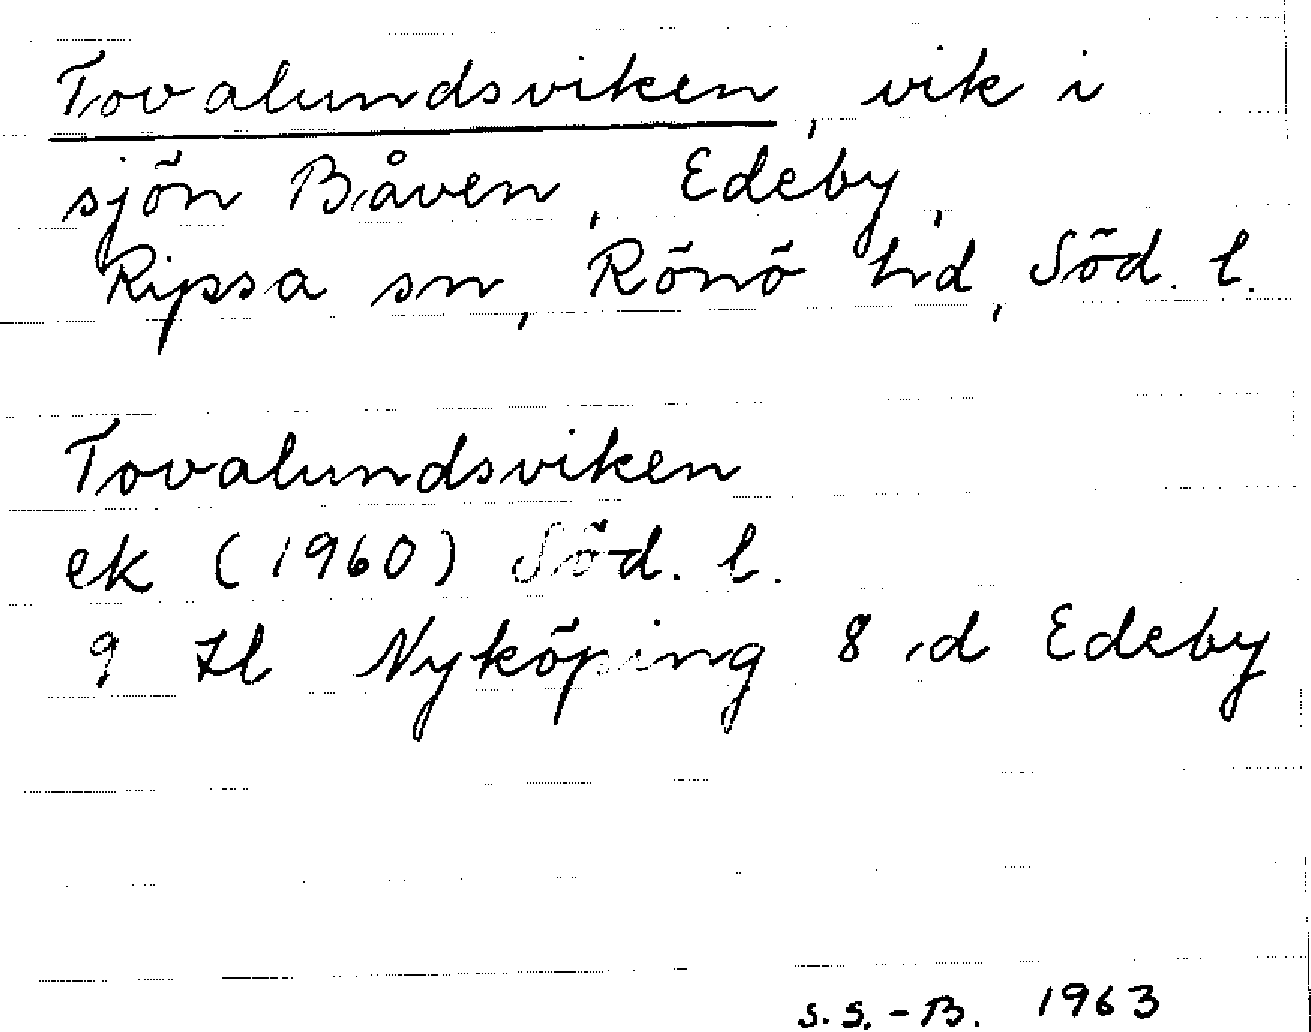 Tovalundsviken, vik i
sjön Båven, Edeby,
Ripsa sn, Rönö hd, Söd. l.
Tovalundsviken
ek (1960) Söd. l.
9 H Nyköping 8 d Edeby
S.S.-B. 1963